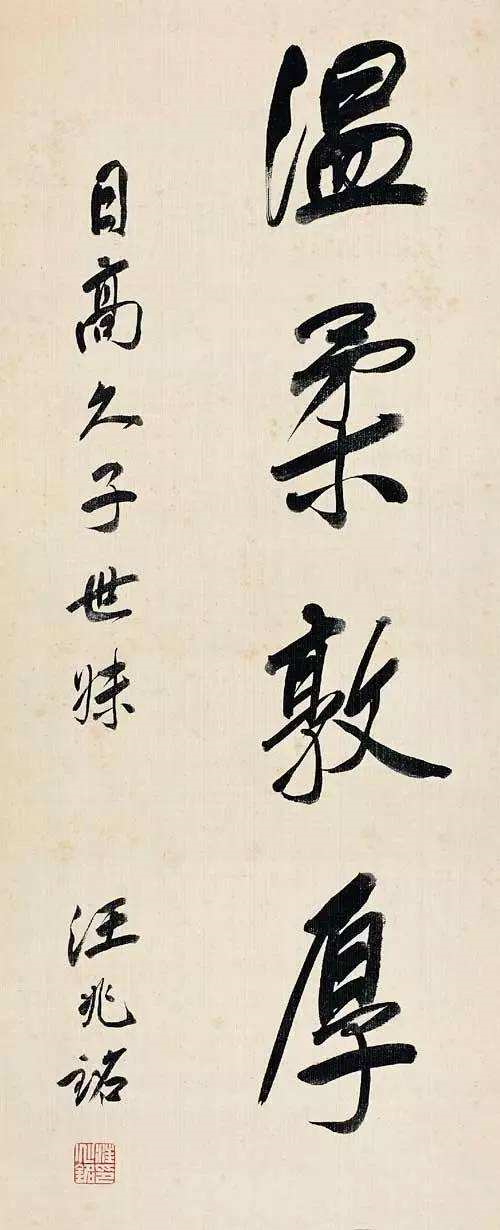 温柔敦厚
日高久子世妹
汪兆銘